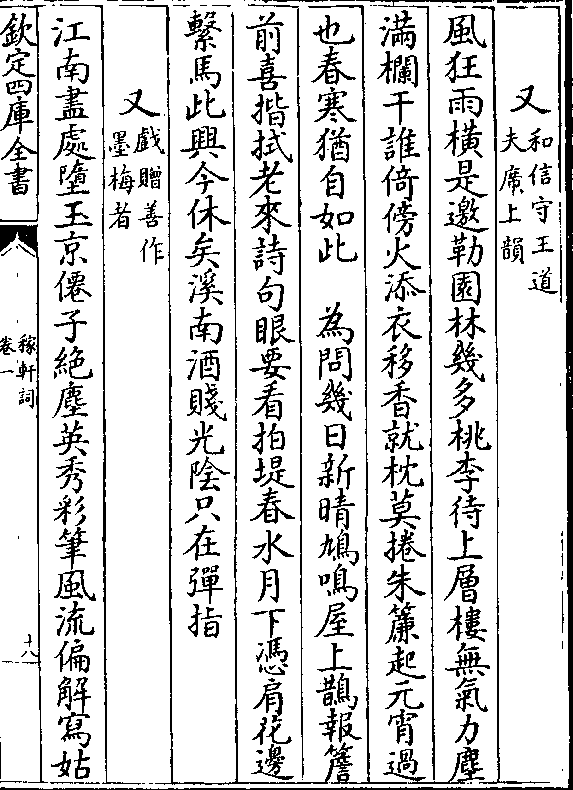 又和信守王道
夫席上韻
風狂雨橫是邀勒園林幾多桃李待上層樓無氣力塵
滿欄干誰倚傍火添衣移香就枕莫捲朱簾起元宵過
也春寒猶自如此　為問幾日新晴鳩鳴屋上鵲報簷
前喜揩拭老來詩句眼要看拍堤春水月下憑肩花邊
繫馬此興今休矣溪南酒賤光陰只在彈指
又戲贈善作
墨梅者
江南盡處墮玉京僊子絶塵英秀彩筆風流偏解寫姑
欽定四庫全書
稼軒詞
卷一
十八